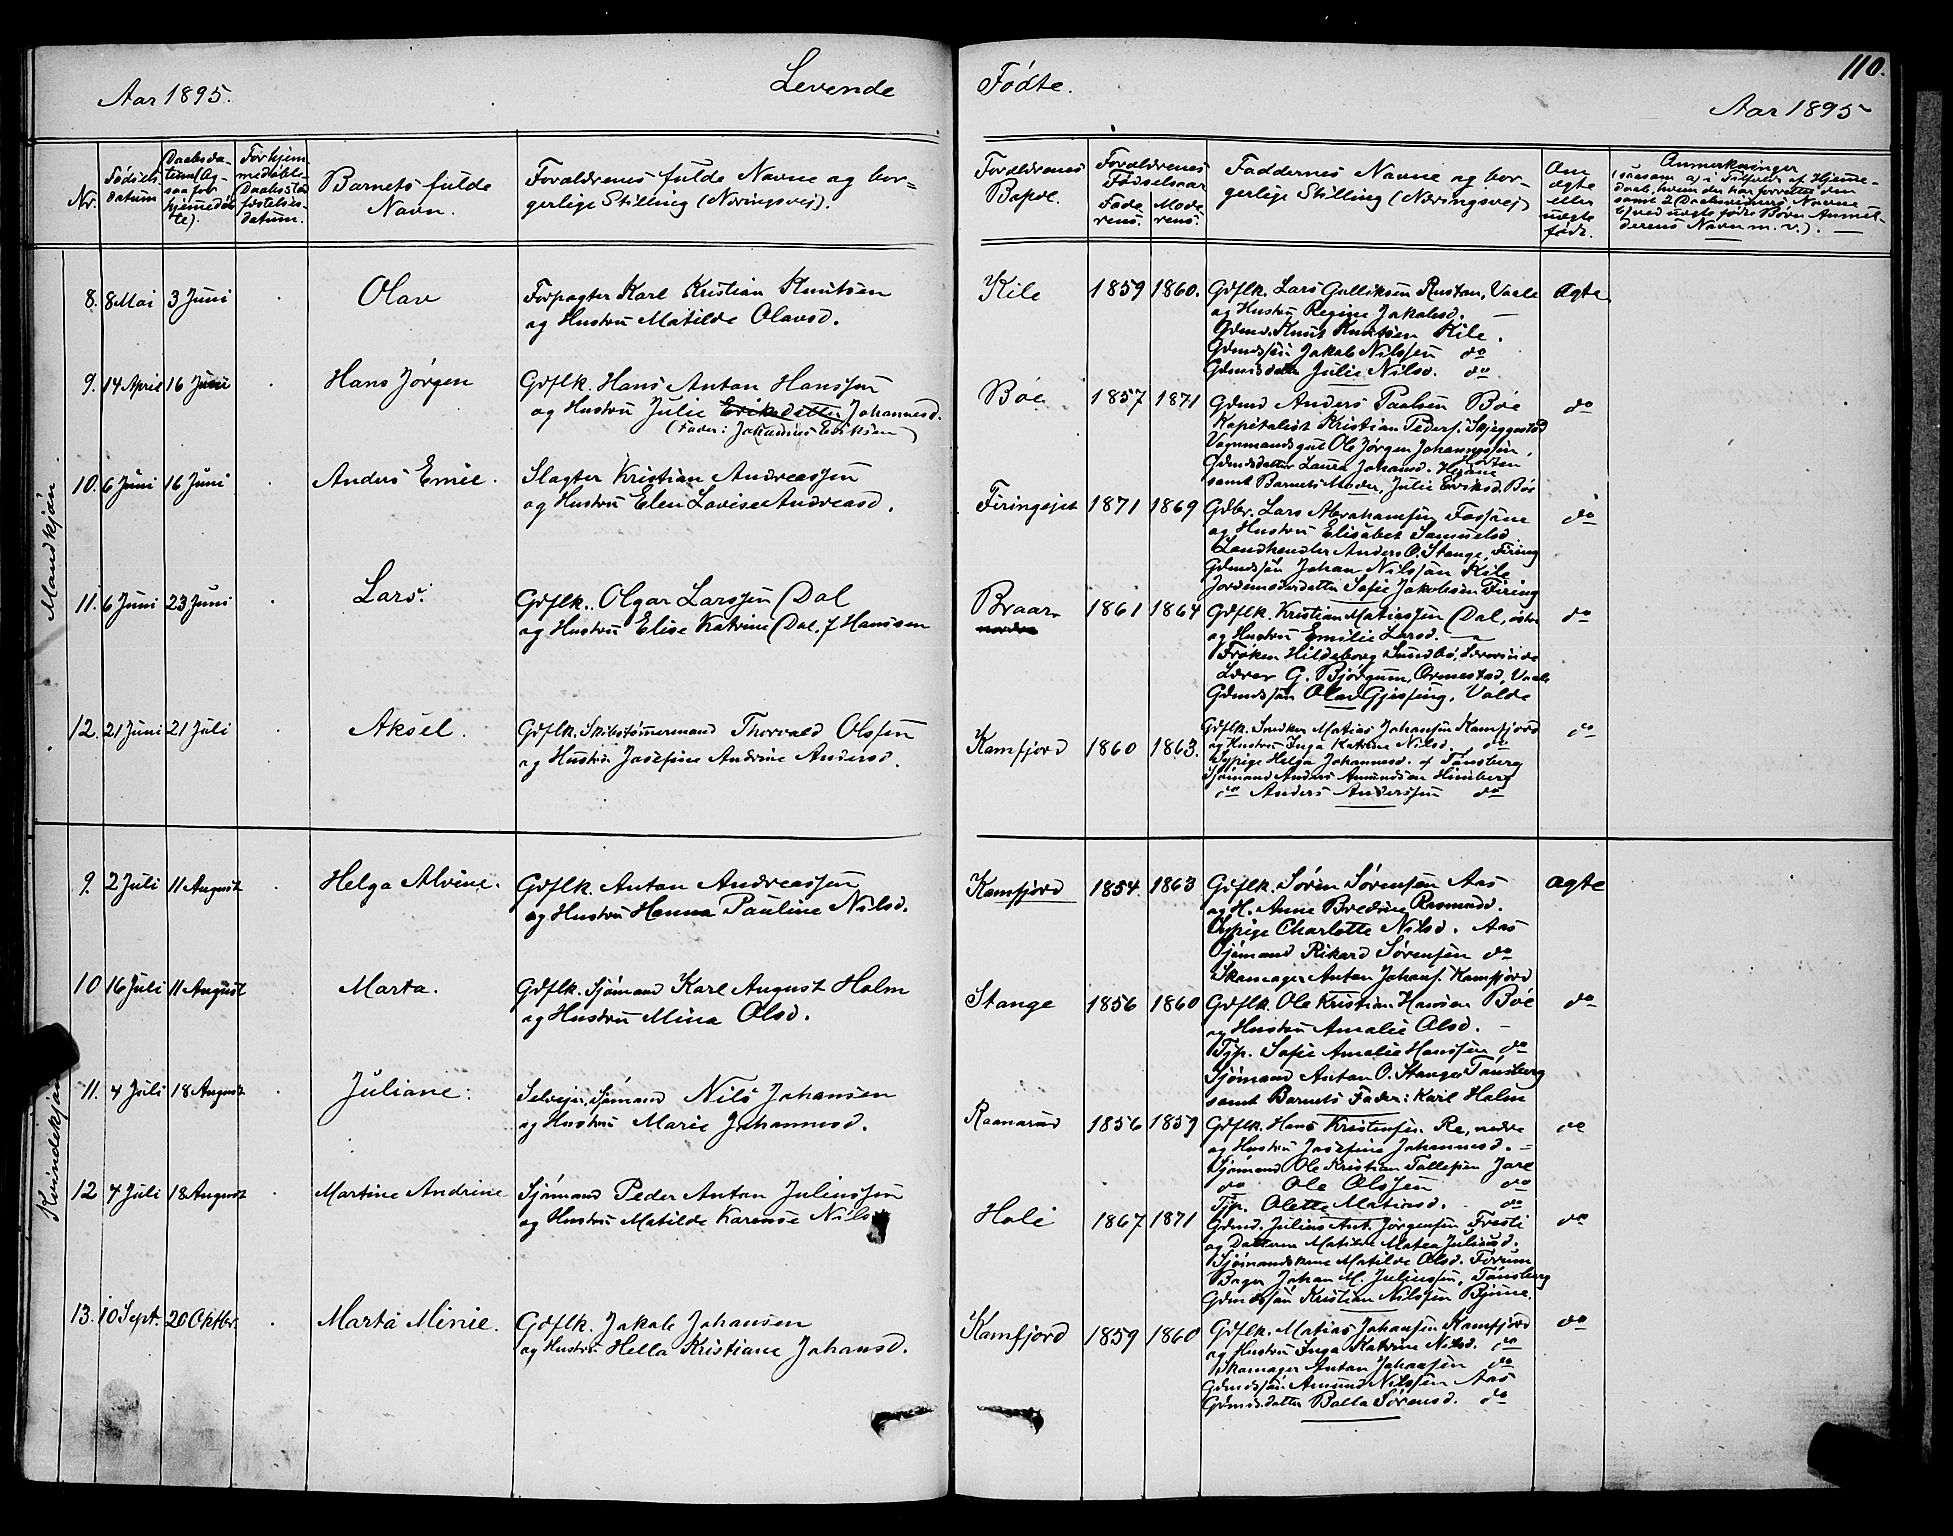 110.
Aar 1895. Levende Fødte. Aar 1895
Nr. Fødsels-datum Daabsda-tum (Og-saa for hjemmedøb-te). For hjem-medøbte Daabsstad-fæstelses-datum. Barnets fulde Navn. Forældrenes fulde Navne og bor-gerlige Stilling (Næringsvej). Forældrenes Bopæl. Forældrenes Fødselsaar Fade-rens. Mode-rens. Faddernes Navne og bor-gerlige Stilling (Næringsvej) Om ægte eller uægte født. Anmerkninger
(saasom a) i Tilfælde af Hjemme-
daab, hvem der har forrettet den
samt 2 Daabsvidners Navne
b) ved uægte fødte Børn Anmel-
derens Navn m. v.).
Mandkjøn
8. 8 Mai 3 Juni Olav
Forpagter Karl Kristian Knutsen
og Hustru Matilde Olavsd.
Kile 1859 1860.
Gdflk. Lars Gulliksen Rustan, Vaale
og Hustru Regine Jakobsd. —
Gdmd. Knut Knutsen Kile.
Gdmdssøn Jakob Nilssen do
Gdmdsdatter Julie Nilsd. do
Ægte
9. 14 April 16 Juni Hans Jørgen
Gdflk. Hans Anton Hanssen
og Hustru Julie Eriksdatter Johannesd.
(Fader: Johannes Eriksen)
Bøe 1857 1871
Gdmd Anders Paulsen Bøe
Kapitalist Kristian Peders. Skjeggestad
Vognmandsgut Ole Jørgen Johannessen,
Horten
Gdmdsdatter Laura Johansd.
samt Barnets Moder, Julie Eriksd. Bøe
do
10. 6 Juni 16 Juni Anders Emil.
Slagter Kristian Andreassen
og Hustru Elen Lovise Andreasd.
Firingejet 1871 1869
Gdbr. Lars Abrahamsen Fossane
og Hustru Elisabet Samuelsd
Landhandler Anders O. Stange, Firing
Gdmdssøn Johan Nilssøn Kile
Jordmoderdatter Sofie Jakobsen Firing
do
11. 6 Juni 23 Juni Lars.
Gdflk. Olgar Larssen Dal
og Hustru Elise Katrine Dal. f Hanssen
Braar nordre 1861 1864
Gdflk. Kristian Matiassen Dal, østre
og Hustru Emilie Larsd. —
Frøken Hildeborg Sundbø, Lærerinde
Lærer G. Bjørgum, Ormestad, Vaale
Gdmdssøn Olav Gjissing, Valde
do
12. 21 Juni 21 Juli Aksel.
Gdflk. Skibstømmermand Thorvald Olssen
og Hustru Josefine Andrine Andersd.
Kamfjord 1860 1863.
Gdflk. Snedker Matias Johansen Kamfjord
og Hustru Inga Katrine Nilsd. do
Sypige Helga Johannesd. af Tønsberg
Sjømand Anders Amundsen Himberg
do Anders Anderssen do
do
Kvindekjøn
9. 2 Juli 11 August Helga Alvine.
Gdflk. Anton Andreassen
og Hustru Hanna Pauline Nilsd.
Kamfjord 1854. 1863
Gdflk. Søren Sørensen Aas
og H. Anne Bredine Rasmusd.
Sypige Charlotte Nilsd. Aas
Sjømand Rikard Sørensen do
Skomager Anton Johans. Kamfjord
Ægte
10 16 Juli 11 August Marta.
Gdflk. Sjømand Karl August Holm
og Hustru Mina Olsd.
Stange 1856 1860
Gdflk. Ole Kristian Hansen Bøe
og Hustru Amalie Olsd. —
Tjp. Sofie Amalie Hanssen do
Sjømand Anton O. Stange, Tønsberg
samt Barnets Fader: Karl Holm
do
11. 4 Juli 18 August Juliane.
Selvejer, Sjømand Nils Johansen
og Hustru Marie Johannesd.
Raanarud 1856 1859
Gdflk. Hans Kristensen. Re, nedre
og Hustru Josefine Johannesd. —
Sjømand Ole Kristian Tollefsen Jarl
do Ole Olssen do
Tjp. Olette Matiasd. do
do
12 4 Juli 18 August Martine Andrine
Sjømand Peder Anton Juliussen
og Hustru Matilde Karense Nils
Holi 1867 1871
Gdmd. Julius Ant. Jørgensen, Fresti
og Datteren Matilde Matea Juliusd.
Sjømandskone Matilde Olsd. Forum
Bager Johan M. Juliussen, Tønsberg
Gdmdssøn Kristian Nilssen Bjune.
do
13. 10 Sept. 20 Oktbr. Marta Minie.
Gdflk. Jakob Johansen
og Hustru Hella Kristiane Johansd.
Kamfjord 1859 1860
Gdflk. Matias Johansen Kamfjord
og Hustru Inga Katrine Nilsd. do
Skomager Anton Johansen do
Gdmdssøn Amund Nilssen Aas
Gdmdsdatter Bolla Sørensd. do
do